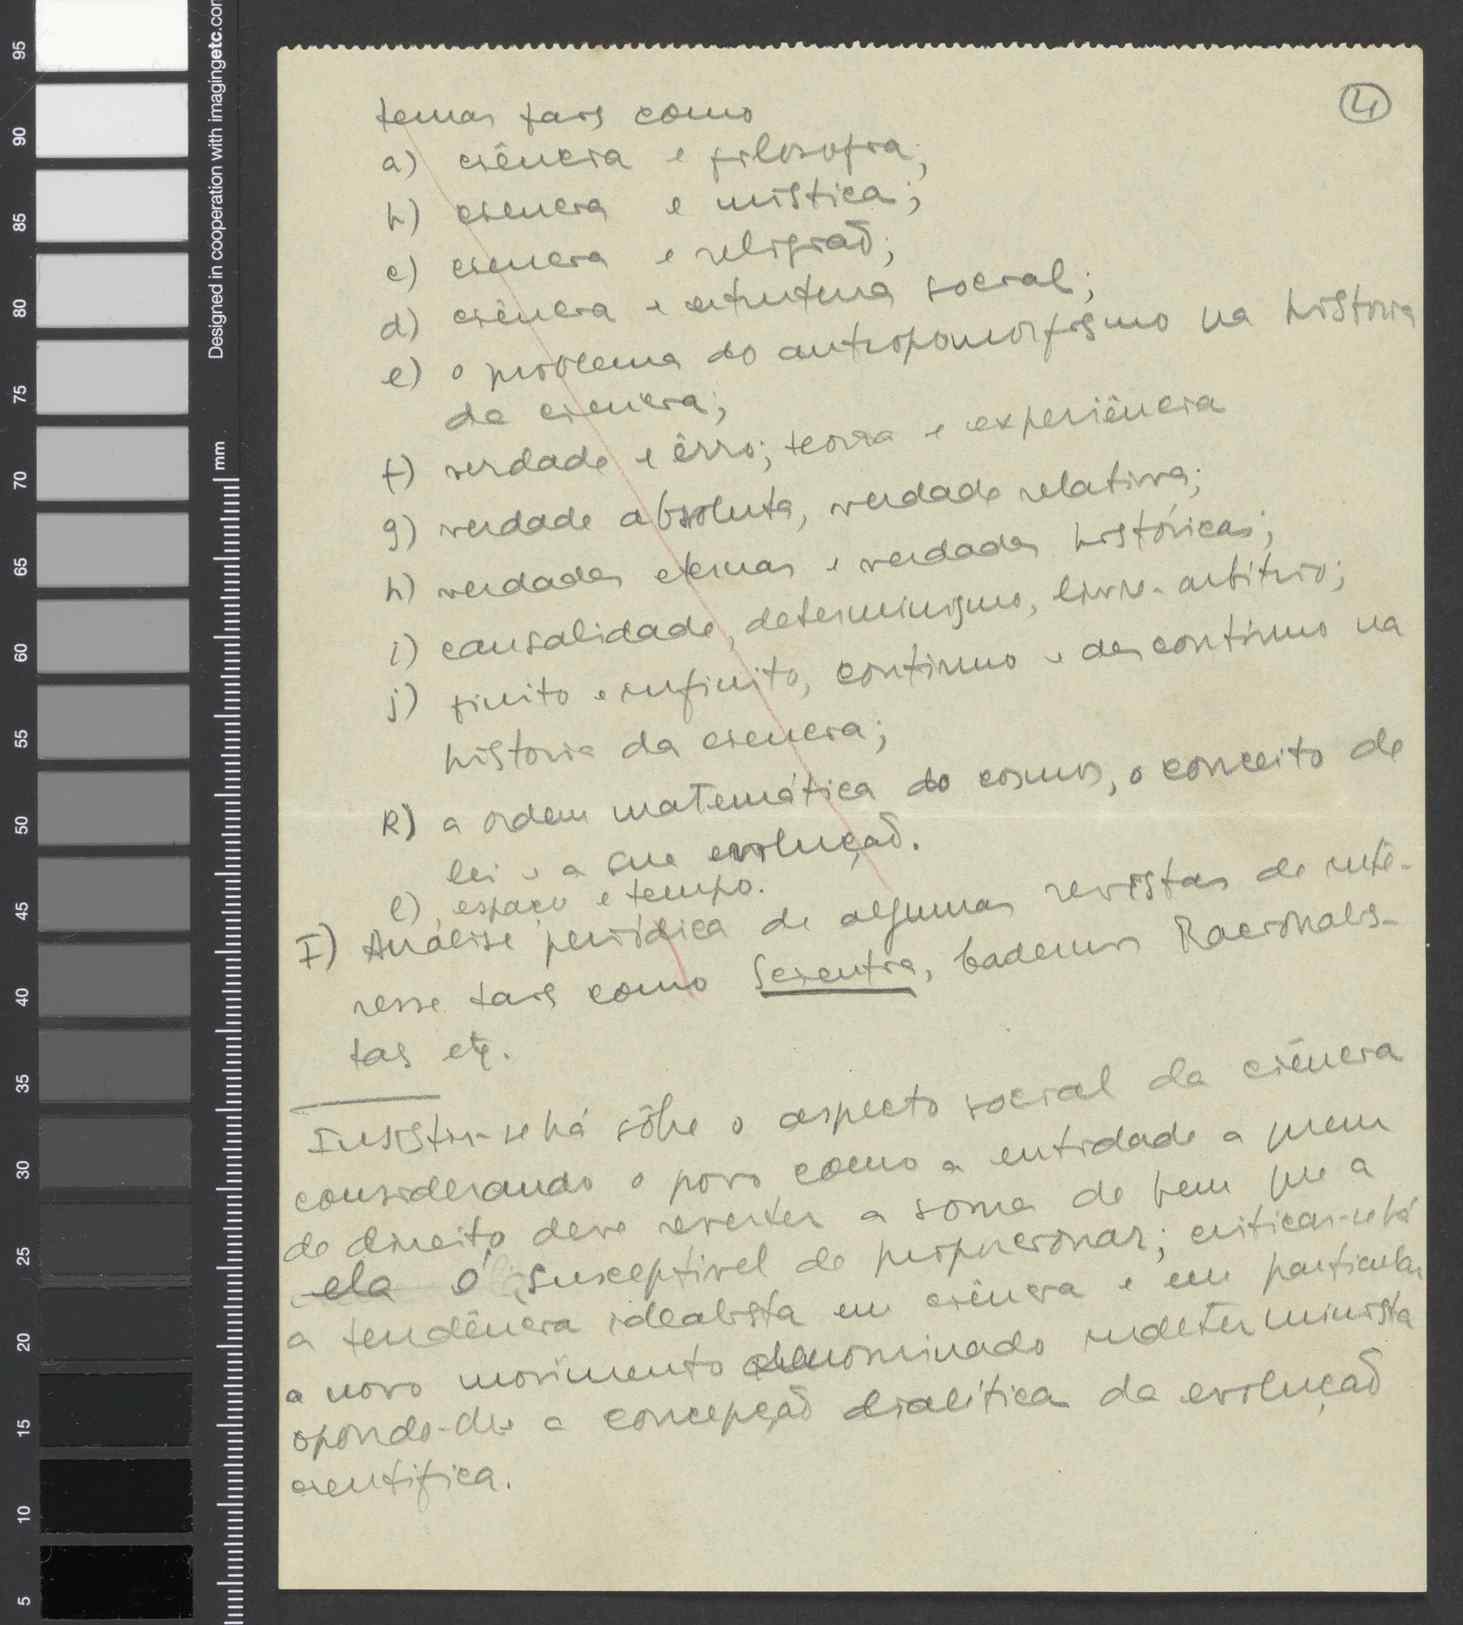 4
temas tais como
a) ciência e filosofia;
b) ciencia e mística;
c) ciencia e religiaõ;
d) ciência e estrutura social;
e) o problema do antropomorfismo na historia
da ciencia;
f) verdade e êrro; teoria e experiência
g) verdade absoluta, verdade relativa;
h) verdades eternas e verdades históricas;
i) causalidade, determinismo, livre-arbitrio;
j) finito e infinito, continuo e descontinuo na
historia da ciencia;
k) a ordem matemática do cosmos, o conceito de
lei e a sua evoluçaõ.
l) espaço e tempo.
I) Análise periódica de algumas revistas de inte-
resse tais como Scientia, Cadernos Racionalis-
tas etc.
Insistir-se há sôbre o aspecto social da ciência
considerando o povo como a entidade a quem
de direito deve reverter a soma de bem que a
ela é susceptivel de proporcionar; criticar-se há
a tendência idealista em ciência e em particular
o novo movimento denominado indeterminista
opondo-lhe a concepçaõ dialética da evoluçaõ
cientifica.
Designed in cooperation with imagingetc.com
mm
95
90
85
80
75
70
65
60
55
50
45
40
35
30
25
20
15
10
5